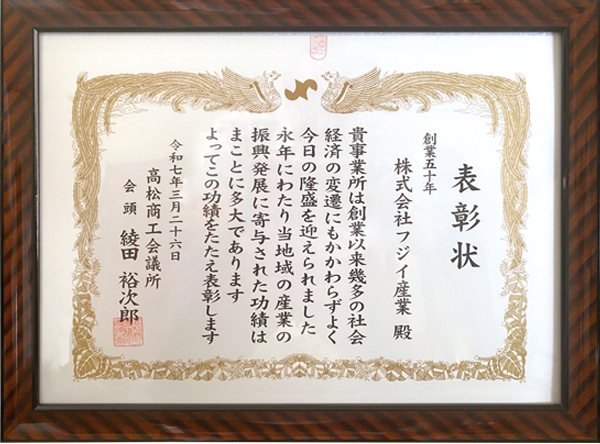 表彰状
創業五十年
株式会社フジイ産業 殿
貴事業所は創業以来幾多の社会
経済の変遷にもかかわらずよく
今日の隆盛を迎えられました
永年にわたり当地域の産業の
振興発展に寄与された功績は
まことに多大であります
よってこの功績をたたえ表彰します
令和七年三月二十六日
高松商工会議所
会頭 綾田 裕次郎